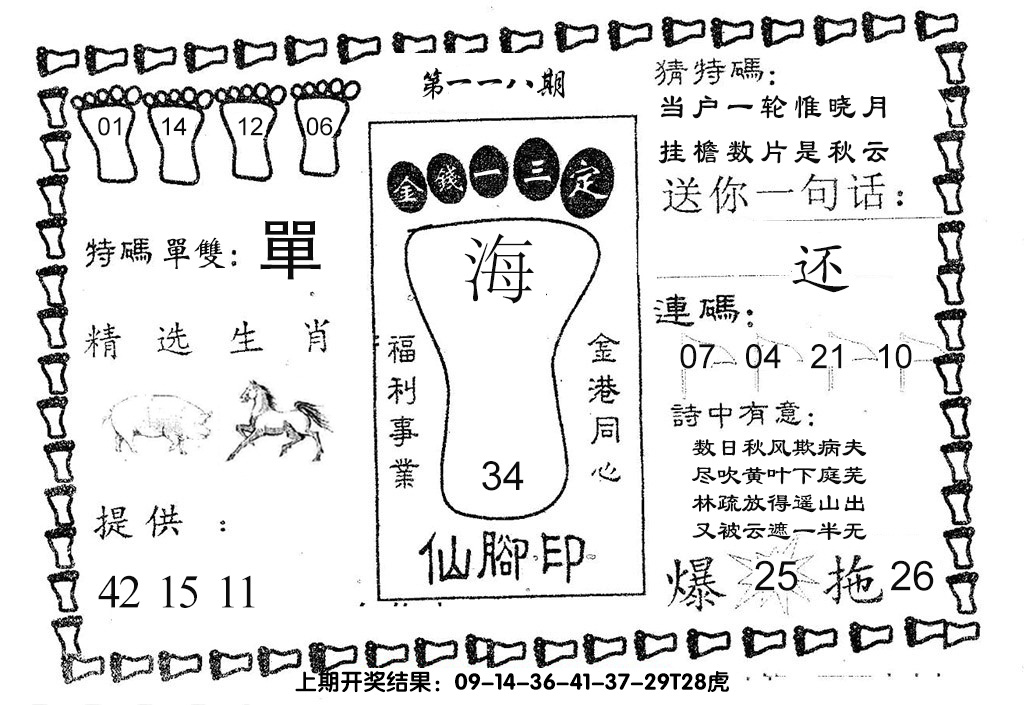 第一一八期
01 14 12 06
特碼單雙：單
精选生肖
提供：
42 15 11
金錢一三定
海
福利事業
金港同心
34
仙腳印
猜特碼：
当户一轮惟晓月
挂檐数片是秋云
送你一句话：
还
連碼：
07 04 21 10
詩中有意：
数日秋风欺病夫
尽吹黄叶下庭芜
林疏放得遥山出
又被云遮一半无
爆 25 拖 26
上期开奖结果：09-14-36-41-37-29T28虎